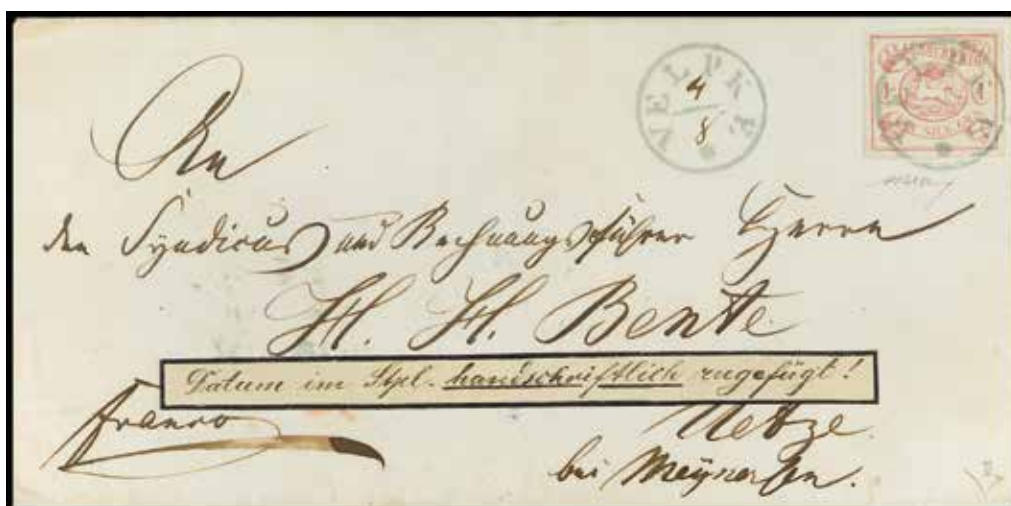 VELPKE
4
8
BRAUNSCHWEIG
1 1
An
den Syndicus und Rechnungsführer Herrn
H. H. Bente
Datum im Stpl. handschriftlich zugefügt!
franco
Uetze
bei Meinersen.